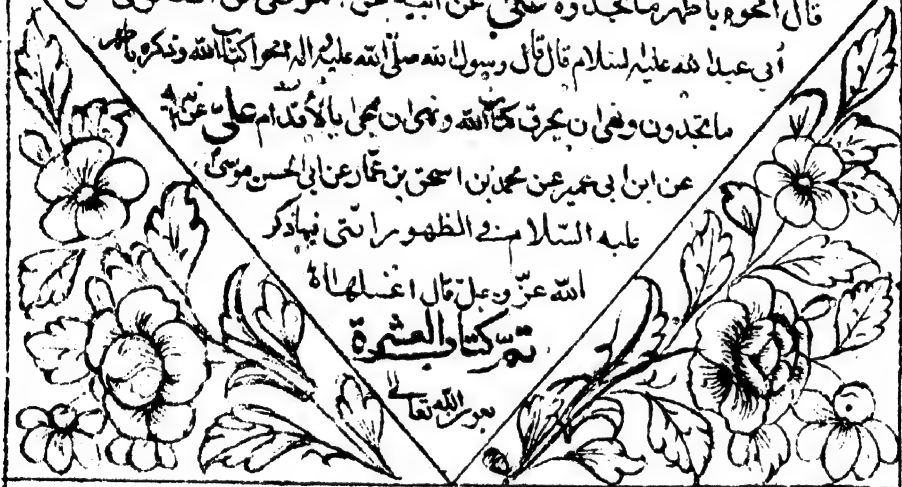 قال امحوه باطهر ما تجدون علي عن ابيه عن
أبي عبد الله عليه السلام قال قال رسول الله صلى الله عليه واله امحوا كتاب الله وذكره باطهر
ما تجدون ونهى ان يحرق كتاب الله ونهى ان يمحى بالأقدام علي عن ابيه
عن ابن ابى عمير عن محمد بن اسحق بن عمار عن ابى الحسن موسى
عليه السلام في الظهور التى فيها ذكر
الله عز وجل قال اغسلها
تم كتاب العشرة
بعون الله تعالى